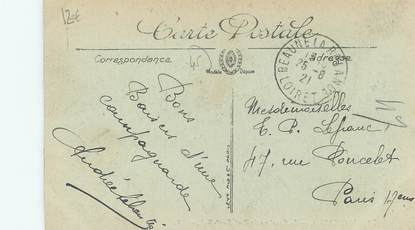 12€
Carte Postale
Correspondance
45
Modèle Déposé
Adresse
BEAUNE-LA-ROLANDE
25-8
21
LOIRET
Bons
Baisers d'une
campagnarde
Andrée
Mesdemoiselles
E. P. Lefranc
47, rue Poncelet
Paris 17ème